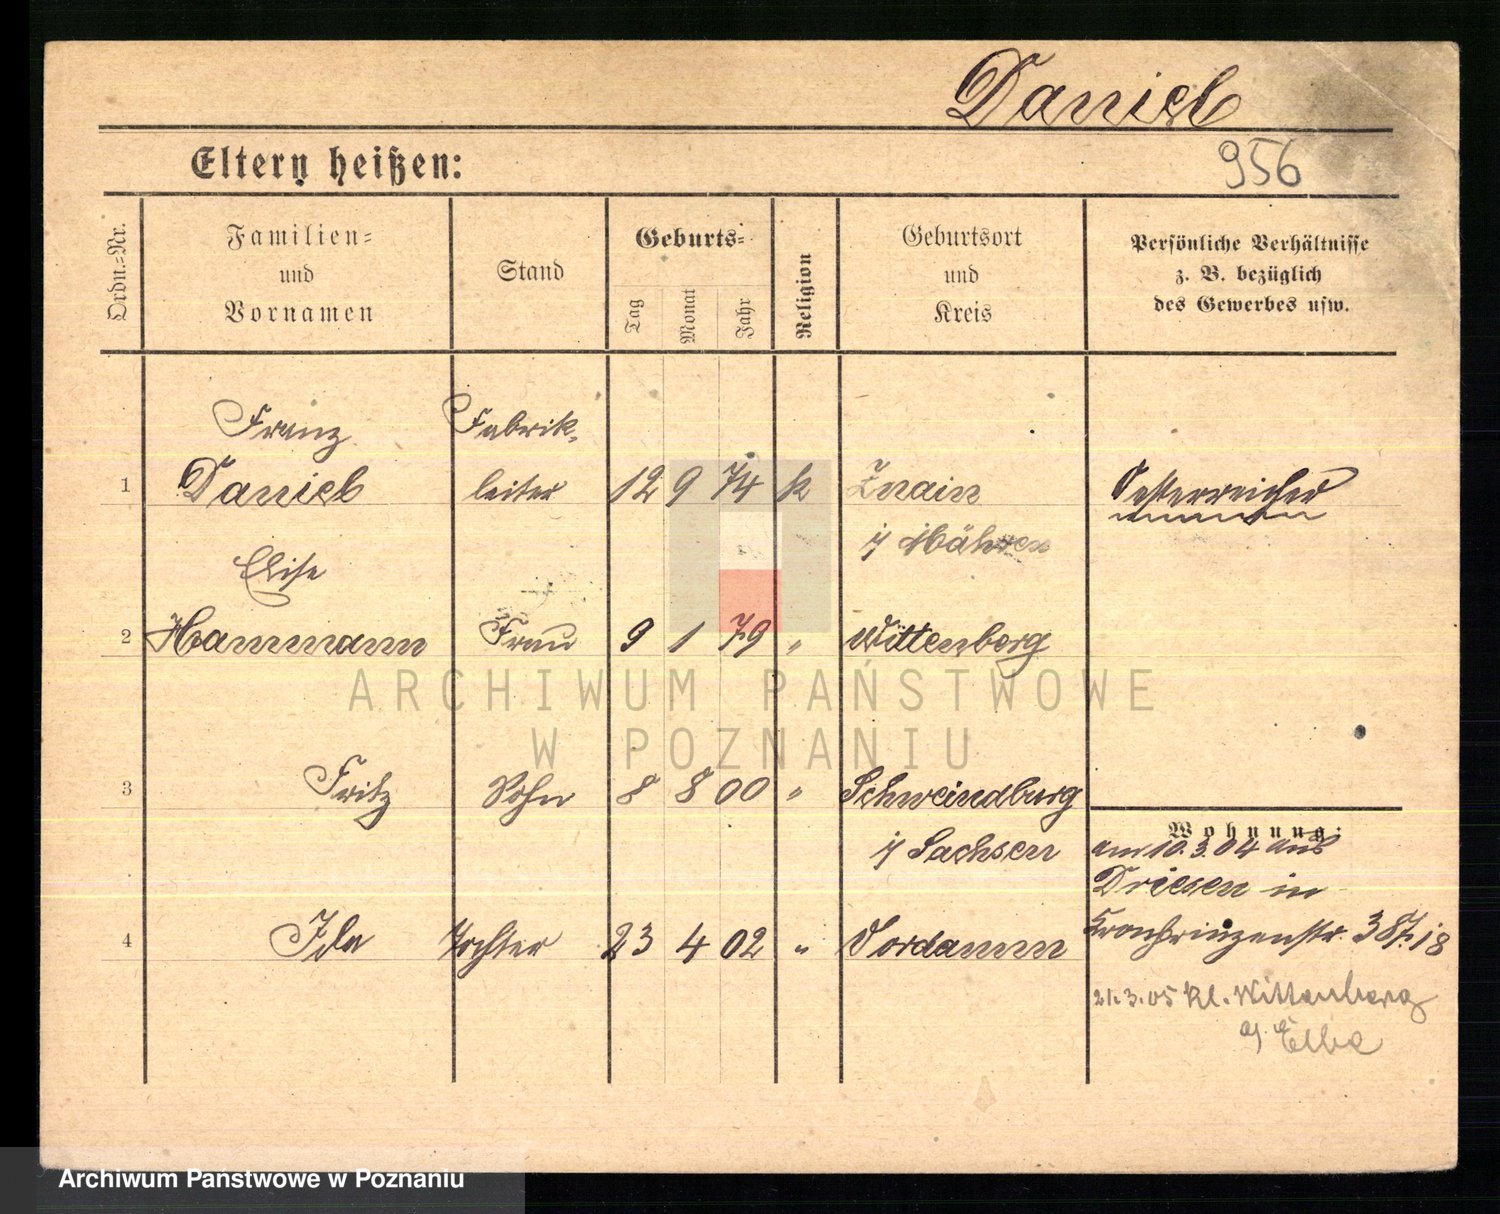 Daniel
Eltern heißen:
956
Ordn.-Nr.
Familien-
und
Vornamen
Stand
Geburts-
Tag
Monat
Jahr
Religion
Geburtsort
und
Kreis
Persönliche Verhältnisse
z. B. bezüglich
des Gewerbes usw.
Franz Fabrik-
1 Daniel leiter 12 9 74 k Znaim Oesterreicher
i/ Mähren
Elise
2 Hammann Frau 9 1 79 " Wittenberg
ARCHIWUM PAŃSTWOWE
W POZNANIU
3 Fritz Sohn 8 8 00 " 
i/ Sachsen
Wohnung:
am 10.3.04 aus
Driesen in
4 Ida Tochter 23 4 02 " Vordamm Kronprinzenstr.
21.3.05 Kl. Wittenberg
a/ Elbe
Archiwum Państwowe w Poznaniu